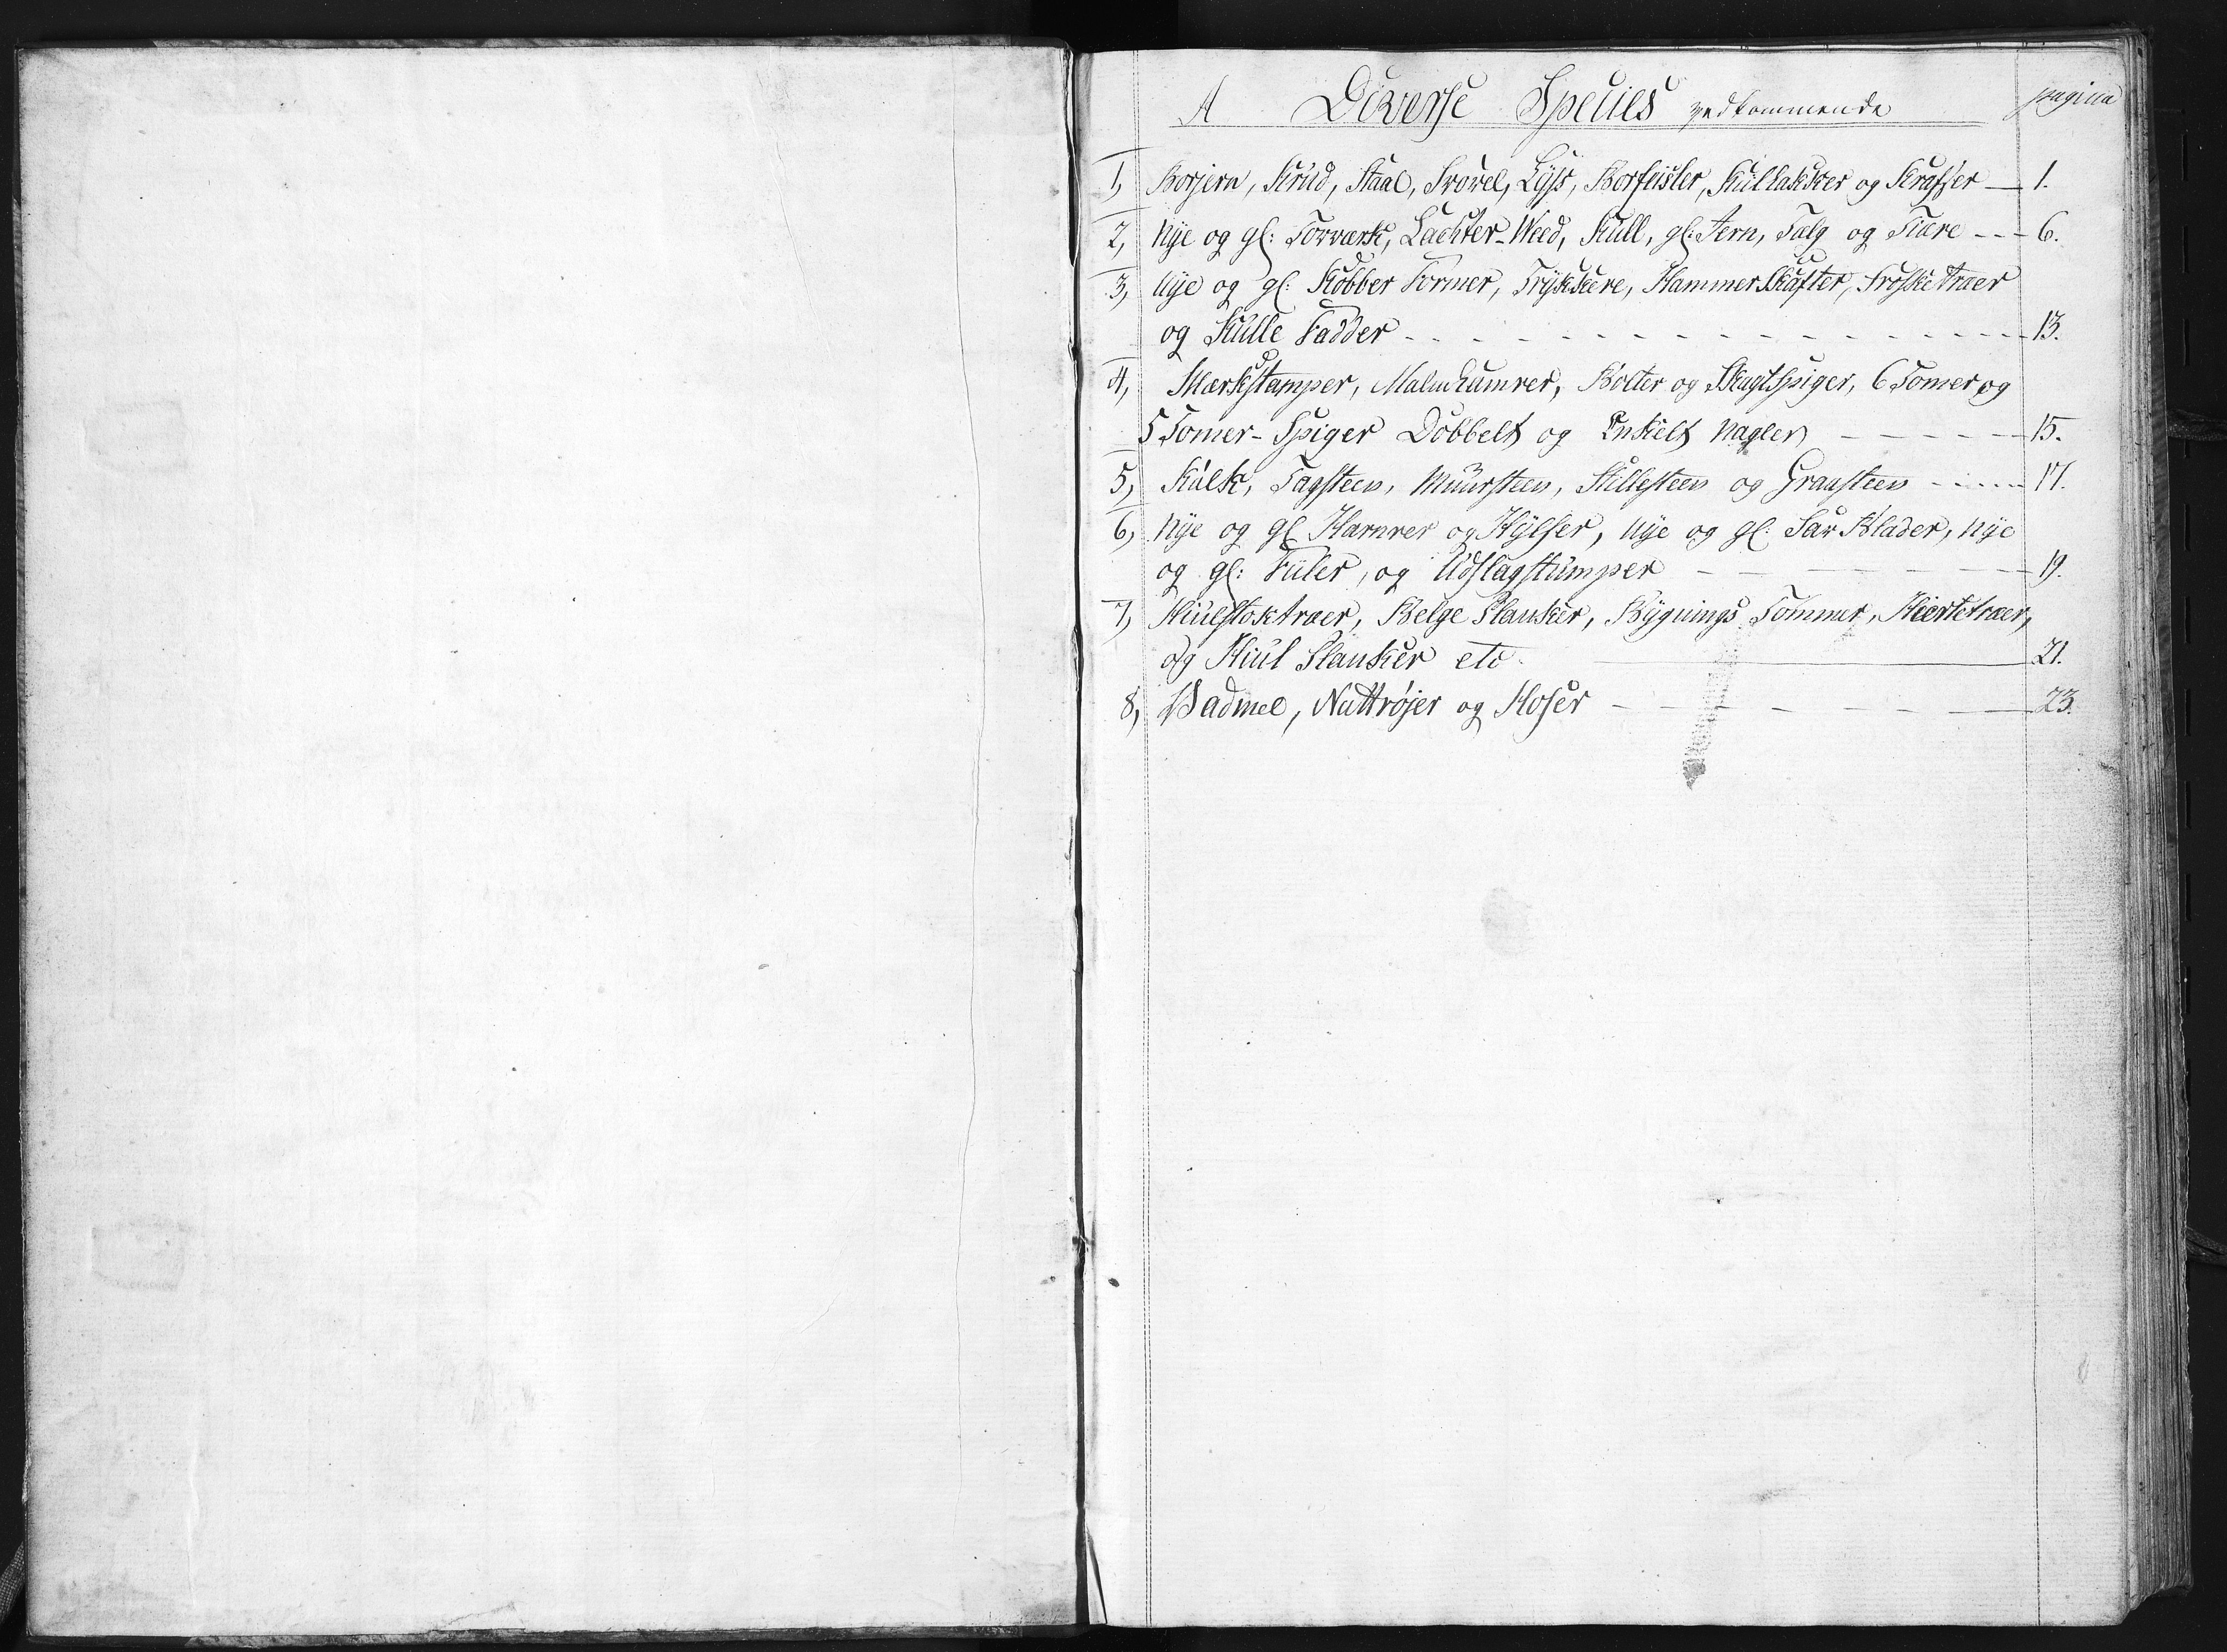 A Diverse Species vedkommende pagina
1, Borjern, Krud, Staal, Svovel, Lys, Borfeisler, Kullakker og Kraffser 1.
2, Nye og gl: Tovværk, Lachter-Weed, Kull, gl: Jern, Talg og Tiære 6.
3, Nye og gl: Kobber Former, Trykkere, Hammer Skafter, Froske træer
og Kulle Fadder 13.
4, Markstamper, Bolter og Skagtspiger, 6 Tomer og
5 Tomer-Spiger Dobbelt og Enkelt Nagler 15.
5, Kalk, Tagsteen, Muursteen, Stillesteen og Graasteen 17.
6, Nye og gl Harnver og Hylser, Nye og gl: Sav Blader, Nye
og gl: Fiiler, og Udslagstumper 19.
7, Hiulstoktræer, Belge Planker, Bygnings Tømmer, Hiertetræer,
og Hiul Planker etc. 21.
8, Vadmel, Nattrøjer og Hoser 23.